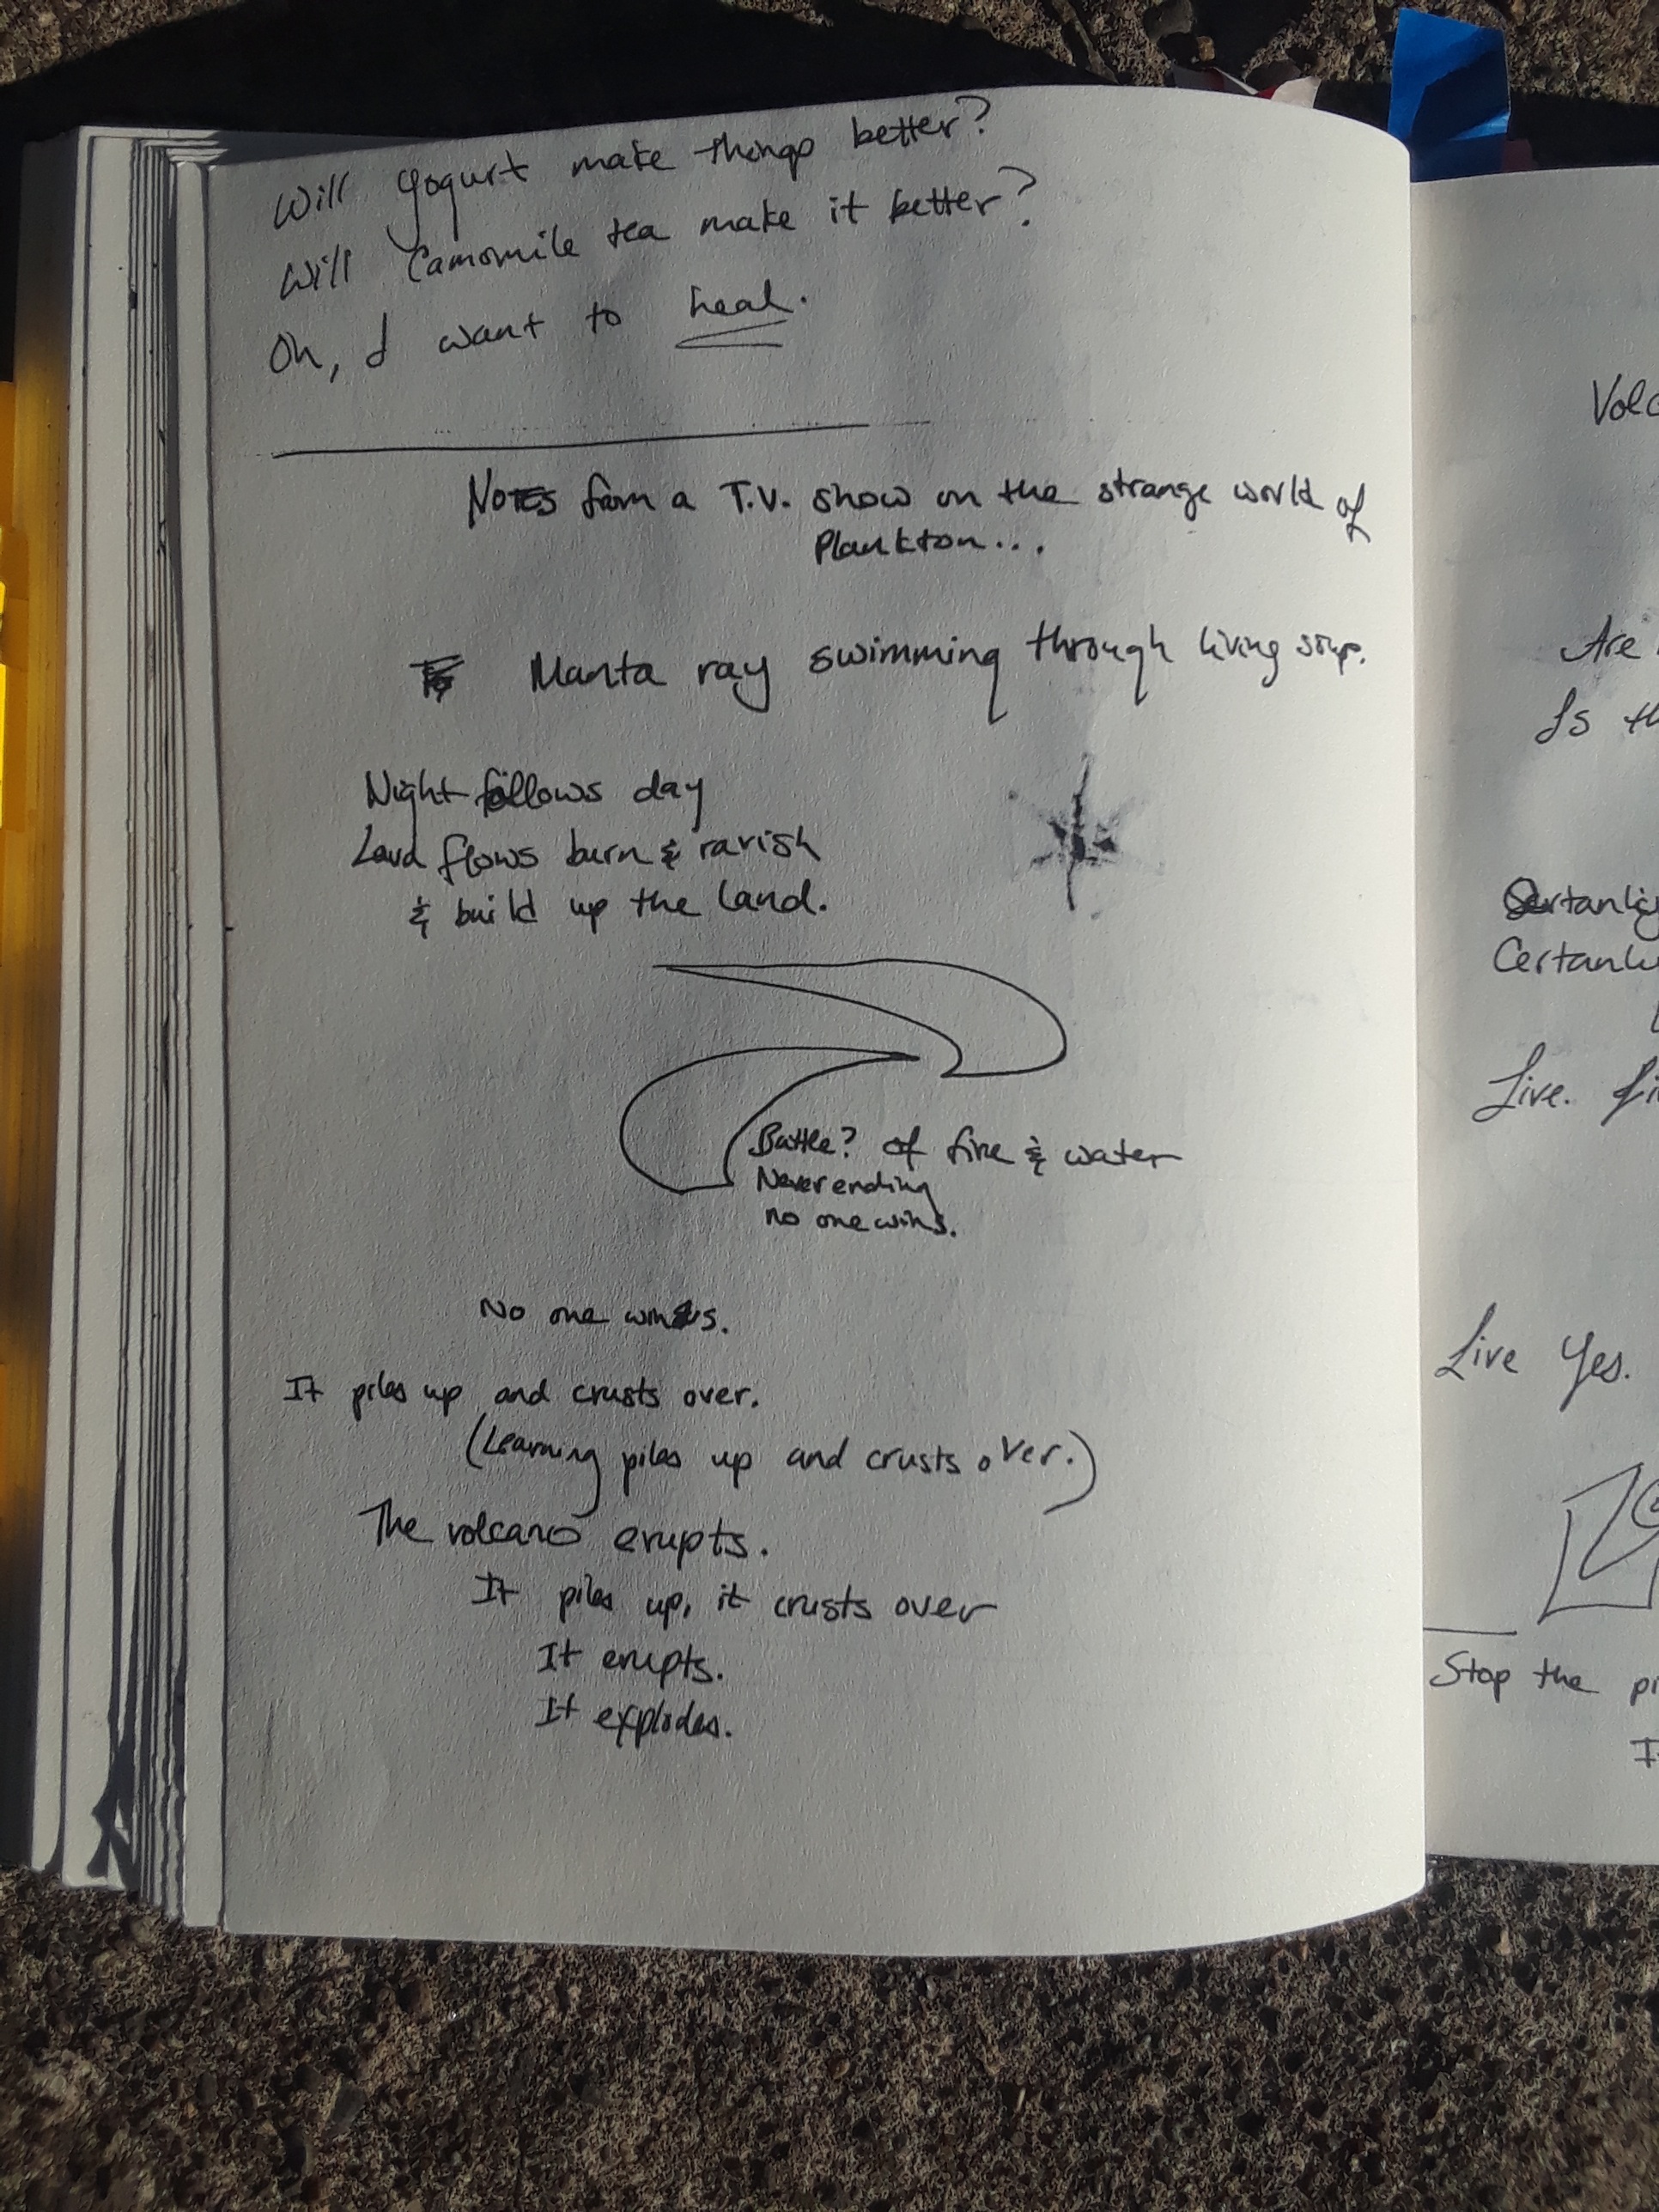 Will yogurt make things better?
Will Camomile tea make it better?
Oh, I want to heal.
Notes from a T.V. show on the strange world of
Plankton...
Manta ray swimming through living soup.
Night follows day
Lava flows burn & ravish
& build up the land.
Battle? of fire & water
Never ending
no one wins.
No one wins.
It piles up and crusts over.
(Learning piles up and crusts over.)
The volcano erupts.
It piles up, it crusts over
It erupts.
It explodes.
Are
Is
Certanly
Live.
Live Yes.
Stop the